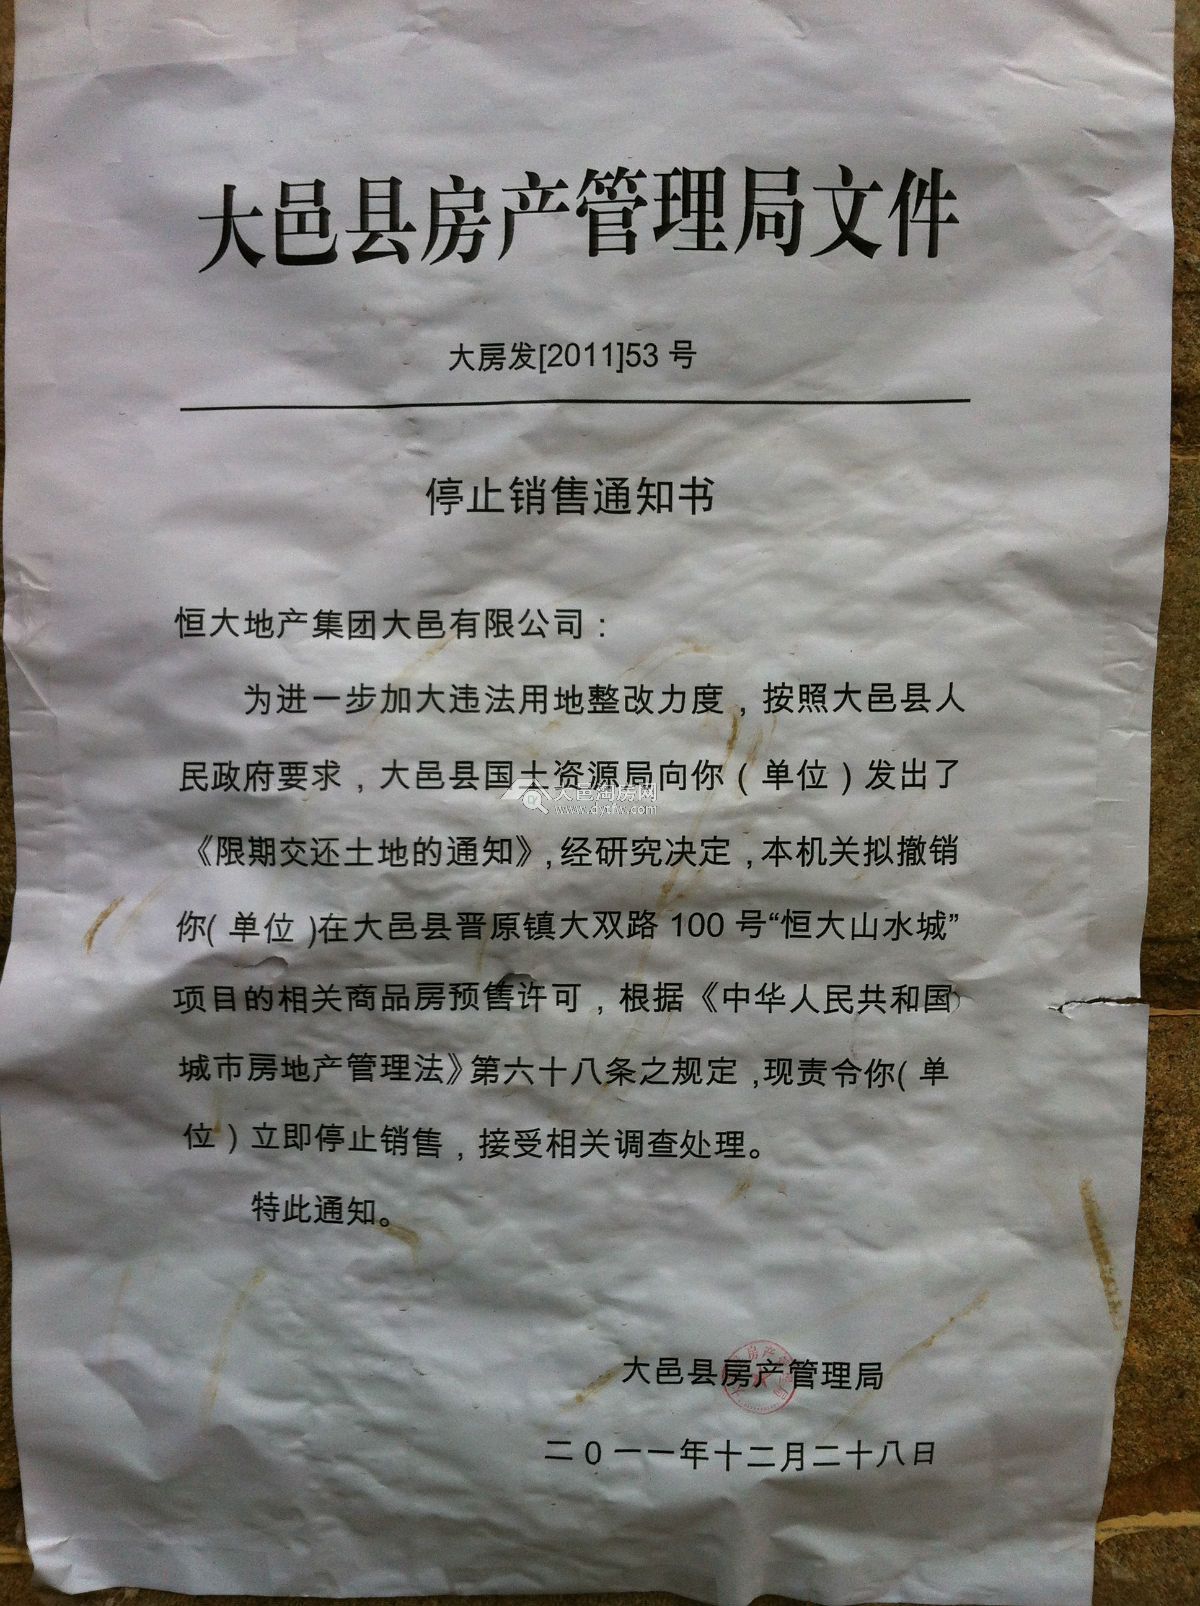 大邑县房产管理局文件
大房发[2011]53 号
停止销售通知书
恒大地产集团大邑有限公司：
为进一步加大违法用地整改力度，按照大邑县人
民政府要求，大邑县国土资源局向你（单位）发出了
大邑淘房网
www.dytfw.com
《限期交还土地的通知》,经研究决定，本机关拟撤销
你( 单位 )在大邑县晋原镇大双路 100 号“恒大山水城”
项目的相关商品房预售许可，根据《中华人民共和国
城市房地产管理法》第六十八条之规定,现责令你( 单
位 ) 立即停止销售，接受相关调查处理。
特此通知。
大邑县房产管理局
二０一一年十二月二十八日